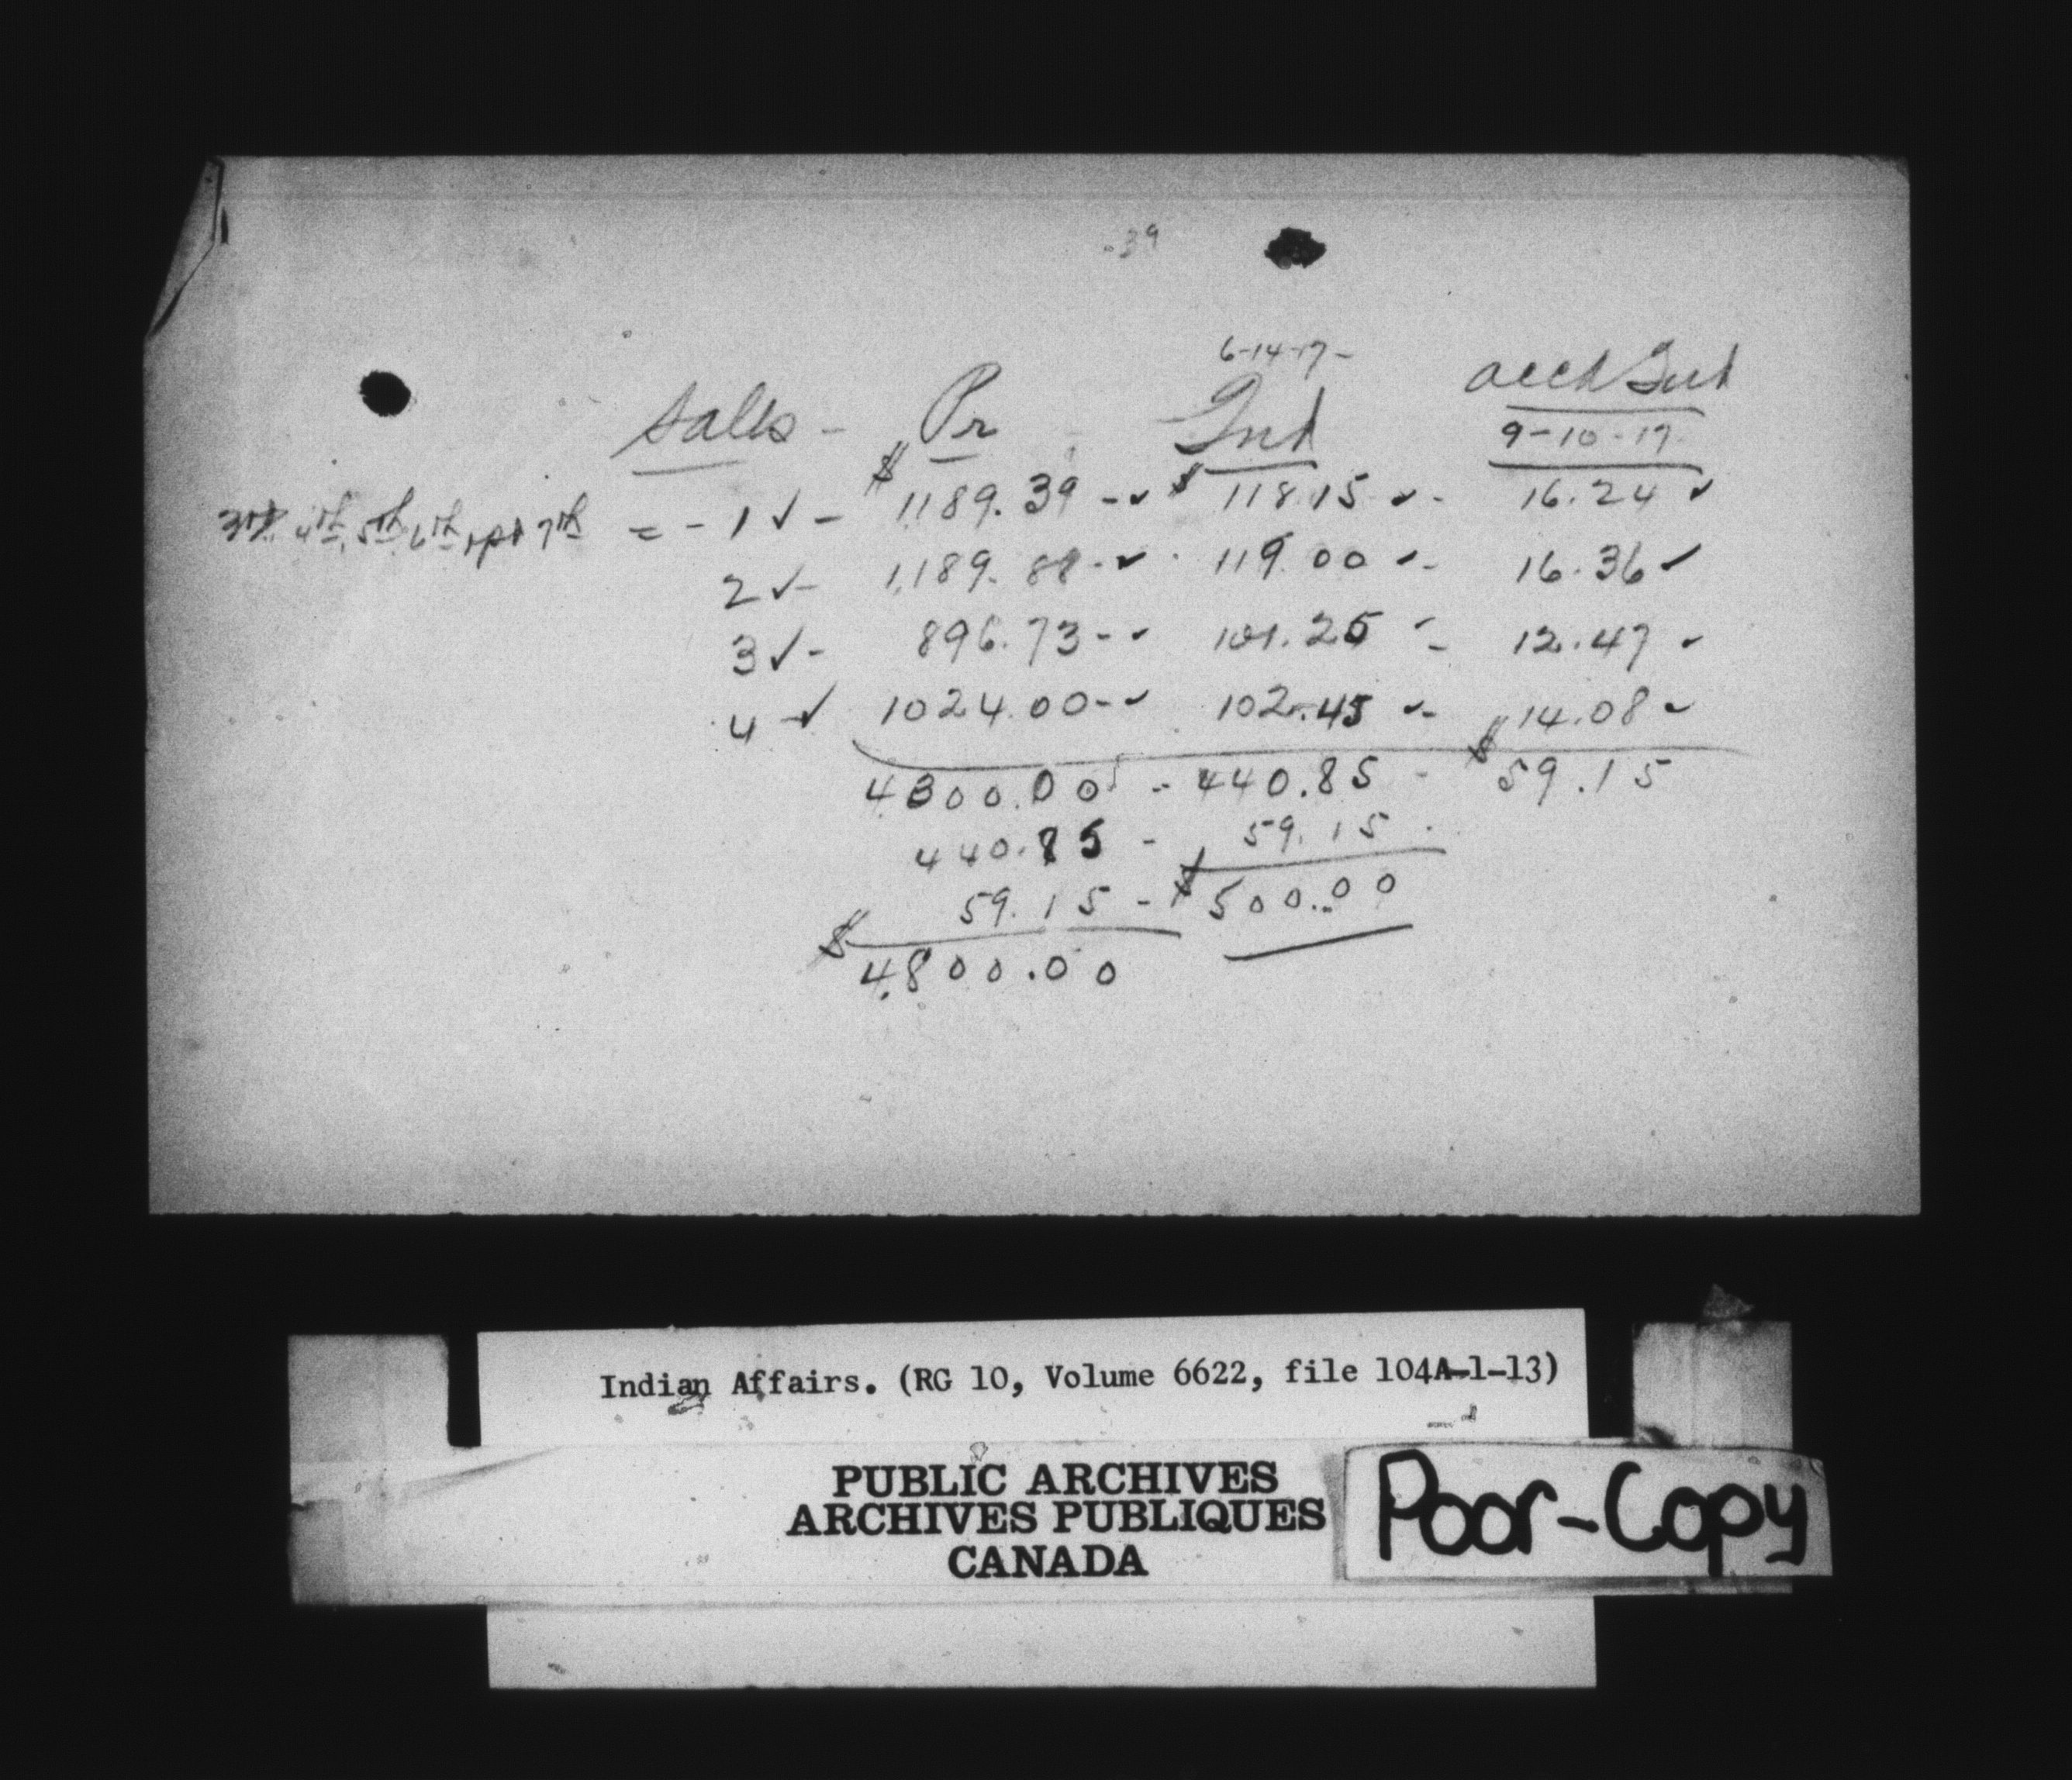 .39
6-14-17-
Sales - Pr - Int accd Int
9-10-17
3rd, 4th, 5th, 6th, & pt 7th = - 1 ✓ - $1,189.39 - ✓ $118.15 ✓ - 16.24 ✓
2 ✓ - 1,189.88 - ✓ 119.00 ✓ - 16.36 ✓
3 ✓ - 896.73 - ✓ 101.25 ✓ - 12.47 ✓
4 - ✓ 1024.00 - ✓ 102.45 ✓ - $14.08 ✓
4300.00 - 440.85 - $59.15
440.85 - 59.15
59.15 - $500.00
$4,800.00
Indian Affairs. (RG 10, Volume 6622, file 104A-1-13)
PUBLIC ARCHIVES
ARCHIVES PUBLIQUES
CANADA
Poor-Copy